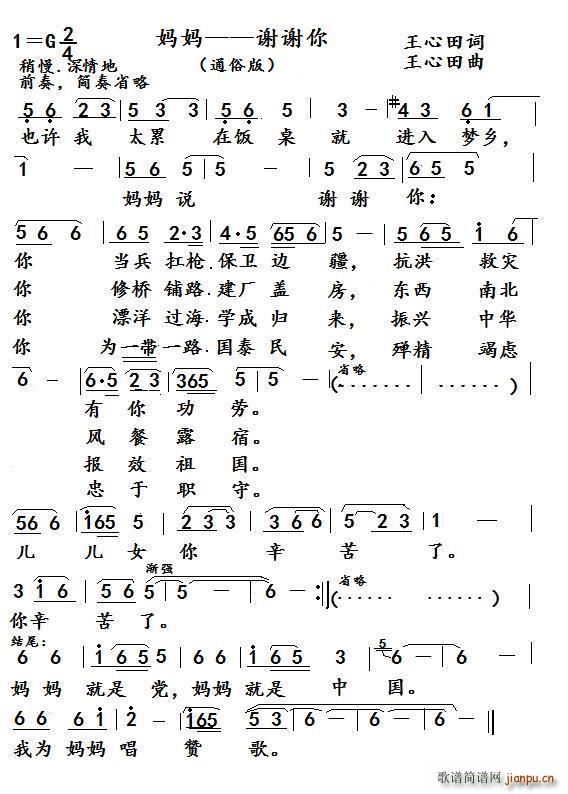 1=G 2/4 妈妈——谢谢你 王心田词
稍慢.深情地 (通俗版) 王心田曲
前奏，简奏省略
5 6 2 3 | 5 3 3 | 5 6 5 | 3 - | #4 3 6 1 |
也许我 太累 在饭桌就 进入梦乡，
1 - | 5 6 5 | 5 - | 5 2 3 | 6 5 5 |
妈妈说 谢谢你：
5 6 6 | 6 5 2·3 | 4·5 6 5 6 | 5 - | 5 6 5 1 6 |
你 当兵扛枪.保卫边疆，抗洪救灾
你 修桥铺路.建厂盖房，东西南北
你 漂洋过海.学成归来，振兴中华
你 为一带一路.国泰民安，殚精竭虑
6 - | 6·5 2 3 | 3 6 5 5 | 5 - | 省略 (······ | ······) |
有你功劳。
风餐露宿。
报效祖国。
忠于职守。
5 6 6 | 1 6 5 5 | 2 3 3 | 3 6 6 | 5 2 3 | 1 - |
儿儿女你辛苦了。
渐强
3 1 6 | 5 6 5 | 5 - | 6 - :| 省略 (······ | ······) |
你辛苦了。
结尾：
6 6 | 1 6 5 | 6 6 6 | 1 6 5 3 | 5 6 - | 6 - |
妈妈就是党，妈妈就是中国。
6 6 6 6 1 | 2 - | 1 6 5 | 5 3 6 | 6 - | 6 - ‖
我为妈妈唱赞歌。
歌谱简谱网 jianpu.cn